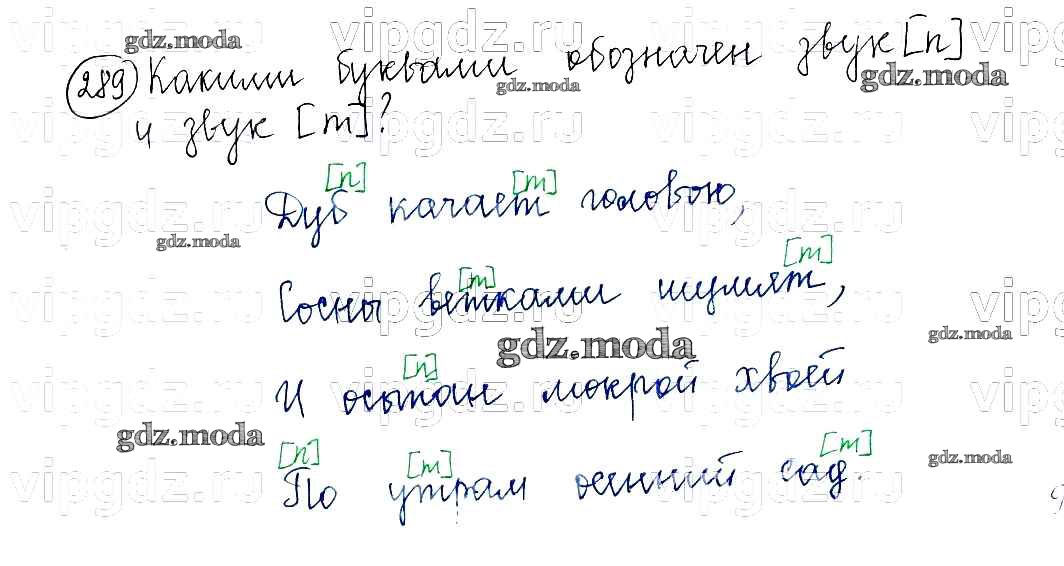 289 Какими буквами обозначен звук [п]
и звук [т]?
[п] [т]
Дуб качает головою,
[т] [т]
Сосны ветками шумят,
[п]
И осыпан мокрой хвоей
[п] [т] [т]
По утрам осенний сад.
gdz.moda
vipgdz.ru